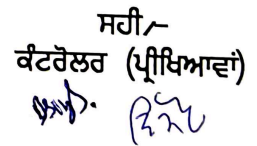 ਸਹੀ/—
ਕੰਟਰੋਲਰ (ਪ੍ਰੀਖਿਆਵਾਂ)